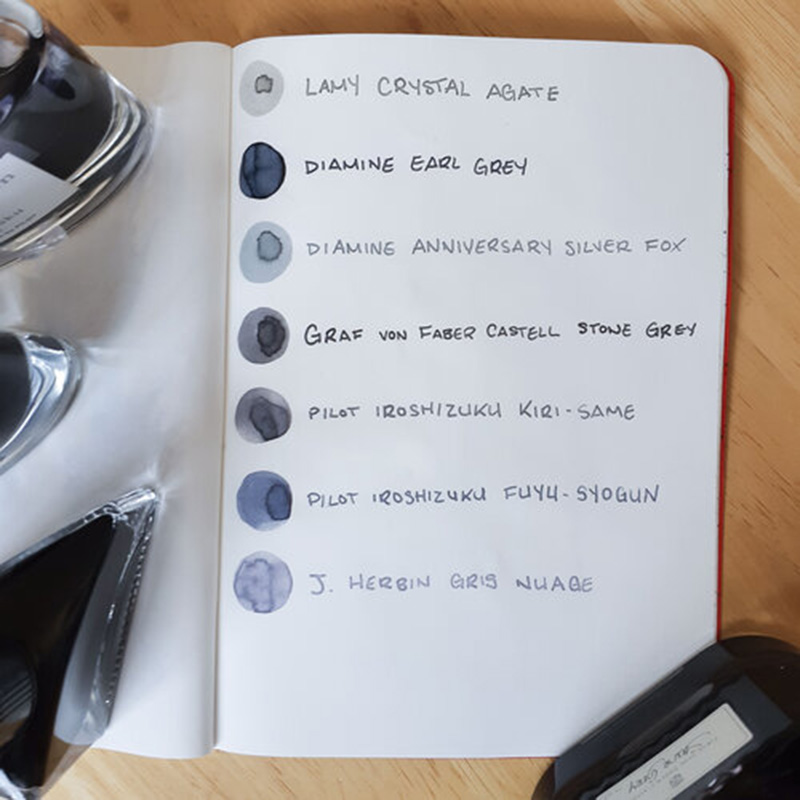 LAMY CRYSTAL AGATE
DIAMINE EARL GREY
DIAMINE ANNIVERSARY SILVER FOX
GRAF VON FABER CASTELL STONE GREY
PILOT IROSHIZUKU KIRI-SAME
PILOT IROSHIZUKU FUYU-SYOGUN
J. HERBIN GRIS NUAGE
Stone Grey